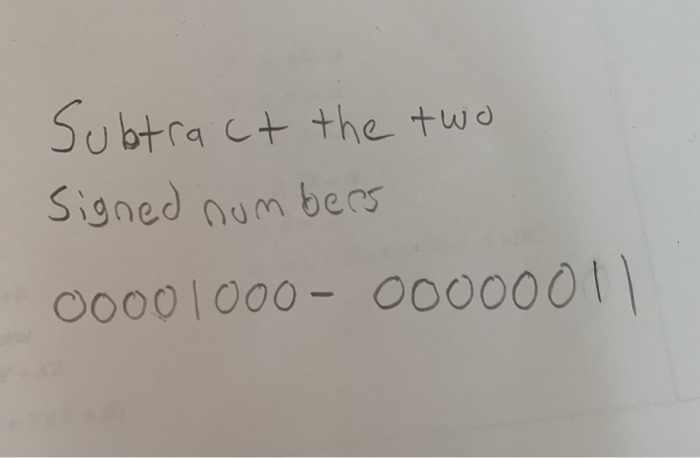 Subtract the two
Signed numbers
00001000 - 00000011